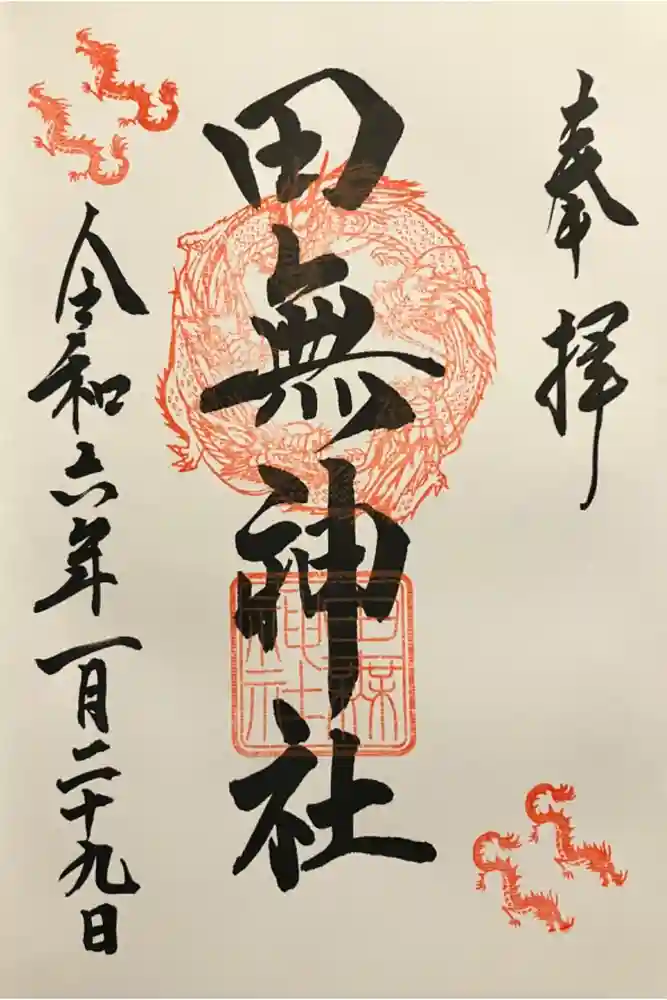 奉拝
田無神社
田無神社
令和六年一月二十九日